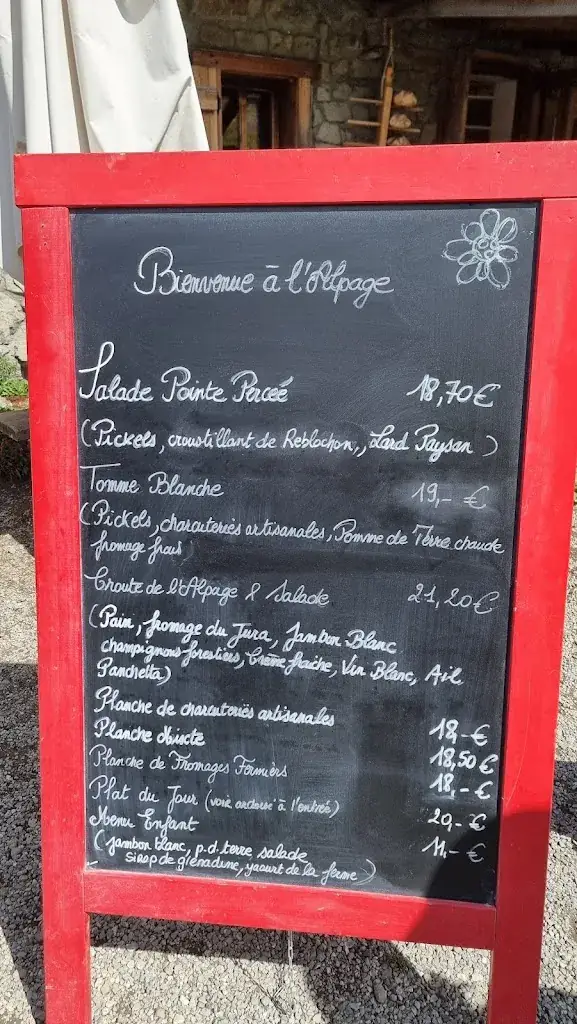 Bienvenue à l'Alpage
Salade Pointe Percée 18,70€
(Pickels, croustillant de Reblochon, Lard Paysan)
Tomme Blanche 19,- €
(Pickels, charcuteries artisanales, Pomme de Terre chaude
fromage frais
Croute de l'Alpage & Salade 21,20€
(Pain, fromage du Jura, Jambon Blanc
champignons forestiers, Crème fraiche, Vin Blanc, Ail
Panchetta)
Planche de charcuteries artisanales 18,-€
Planche Mixte 18,50€
Planche de Fromages Fermiers 18,-€
Plat du Jour (voir ardoise à l'entrée) 20,-€
Menu Enfant 11,-€
(jambon blanc, p.d.terre, salade
sirop de grenadine, yaourt de la ferme)